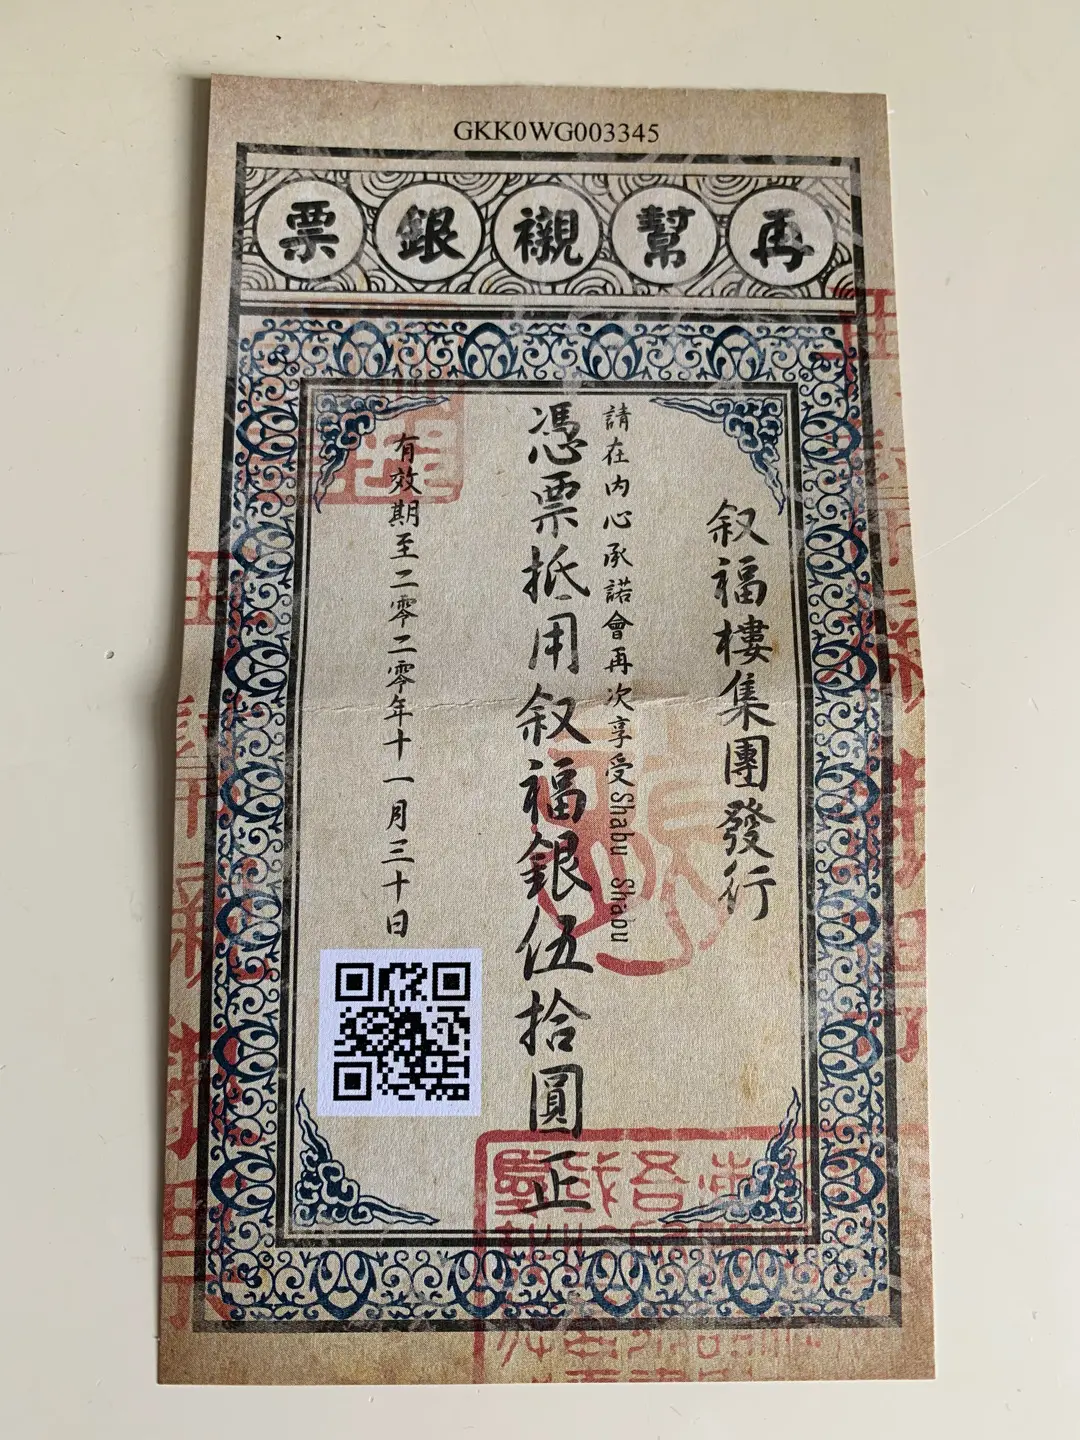 GKK0WG003345
再幫襯銀票
叙福樓集團發行
請在内心承諾會再次享受Shabu Shabu
憑票抵用叙福銀伍拾圓正
有效期至二零二零年十一月三十日